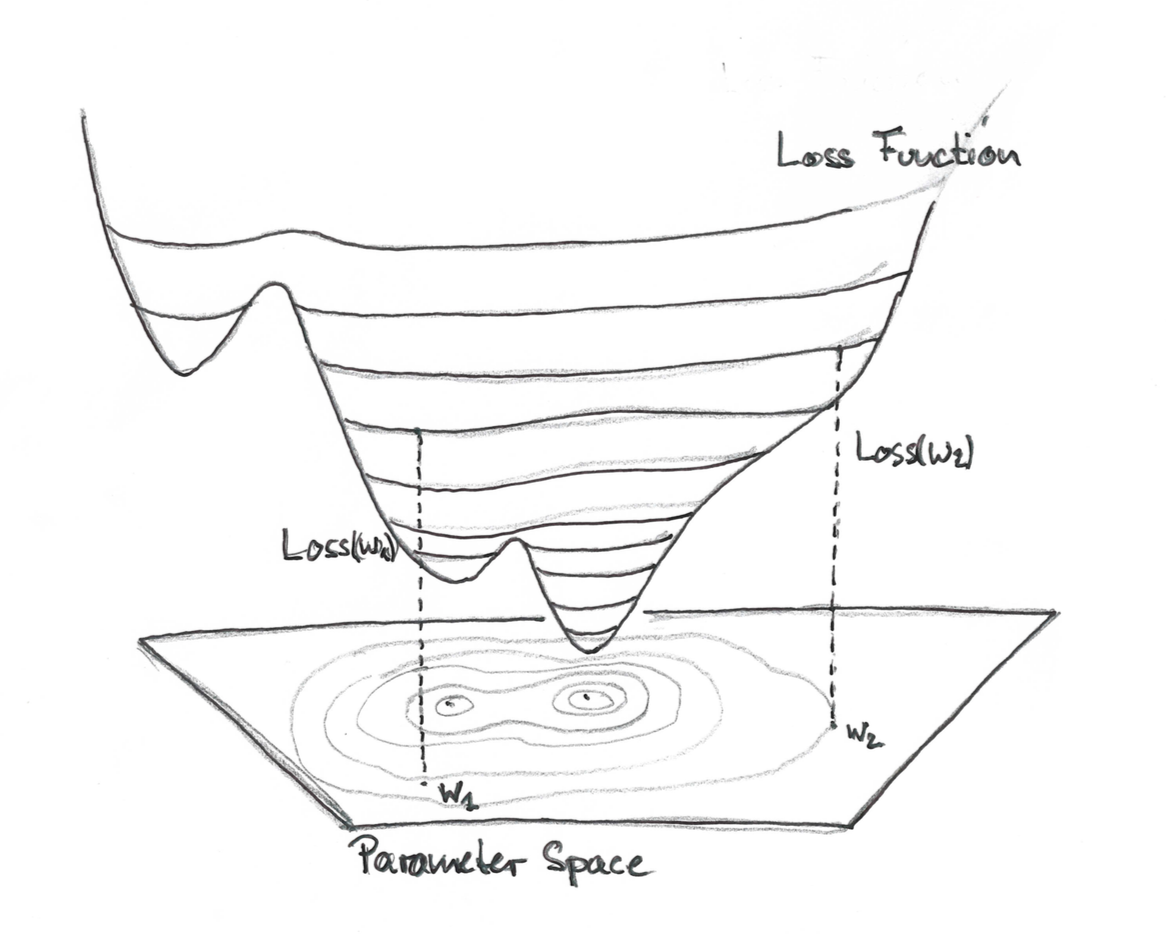 Loss Function
Loss(w₂)
Loss(w₁)
w₂
w₁
Parameter Space